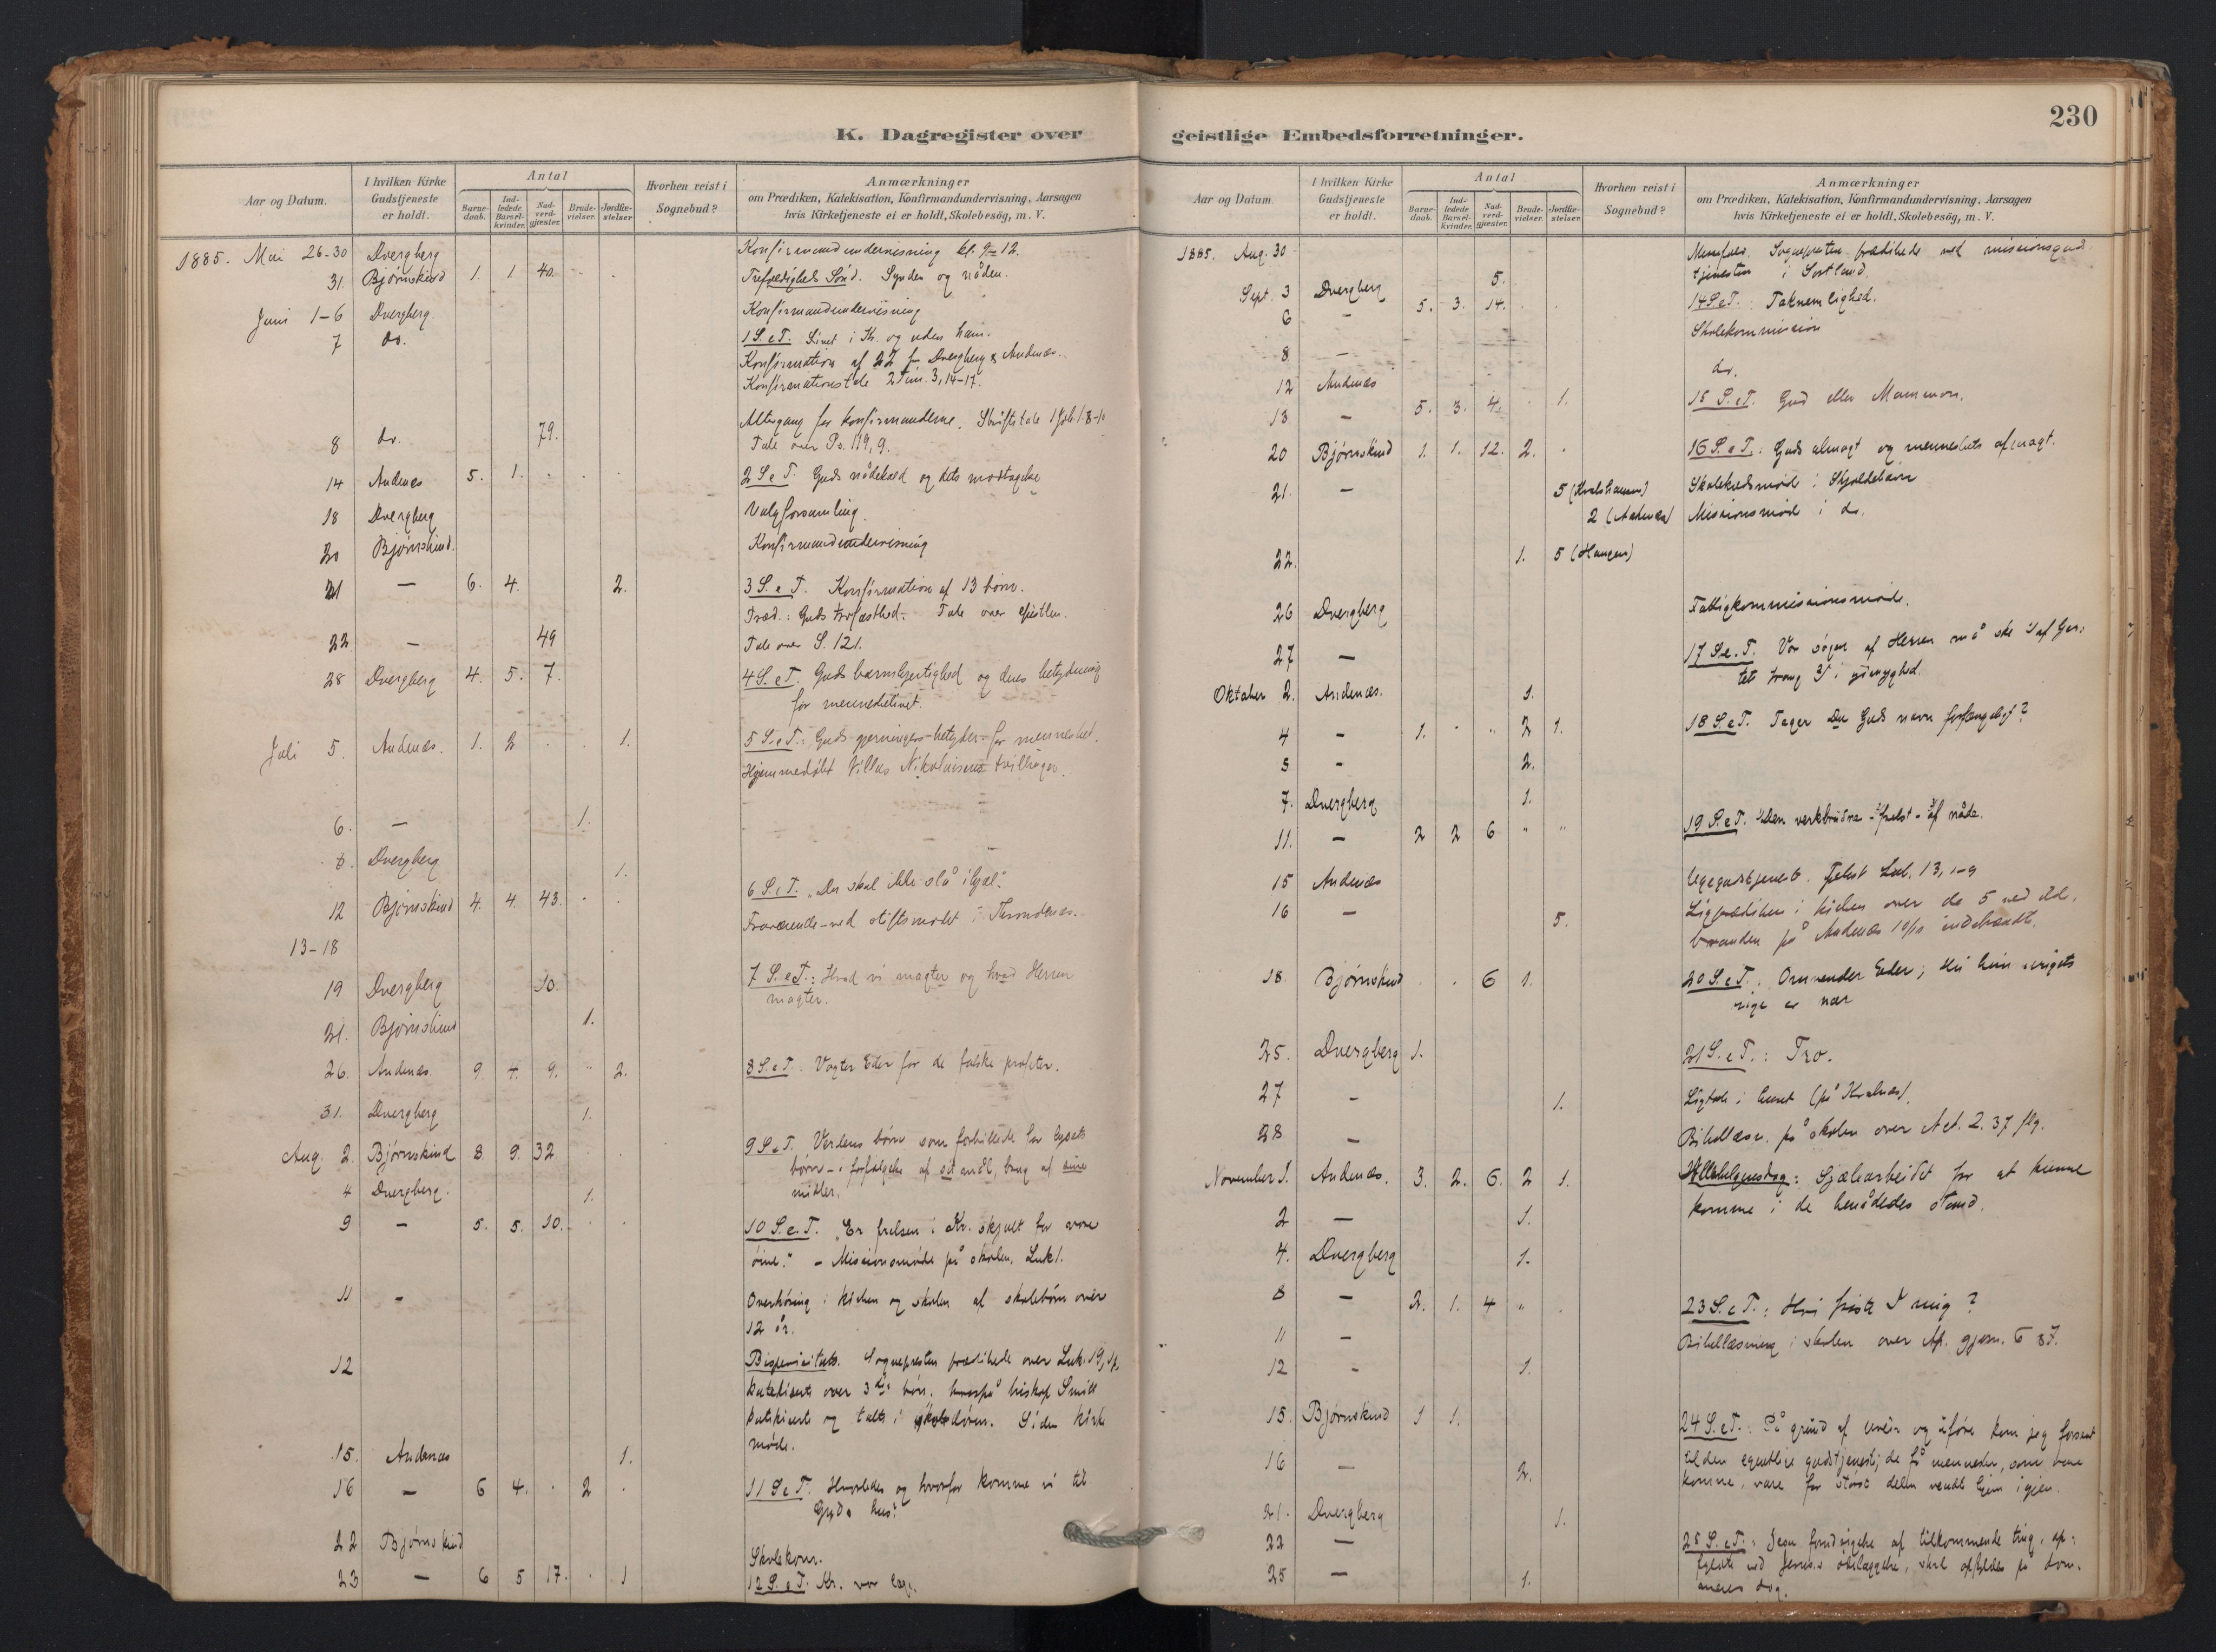 K. Dagregister over
Aar og Datum.
I hvilken Kirke Gudstjeneste er holdt.
Antal
Barne-daab.
Ind-ledede Barsel-kvinder.
Nad-verd-gjæster.
Brude-vielser.
Jordfæ-stelser
Hvorhen reist i Sognebud?
Anmærkninger
om Prædiken, Katekisation, Konfirmandundervisning, Aarsagen
hvis Kirketjeneste ei er holdt, Skolebesög, m. V.
1885. Mai 26-30 Dvergberg Konfirmandundervisning kl. 9-12.
31. Bjørnskind 1. 1 40. Trefoldigheds Sønd. Synden og nåden.
Juni 1-6 Dvergberg. Konfirmandundervisning
7 do. 1 S. e T. Livet i Kr. og uden ham.
Konfirmation af 22 fra Dvergberg & Andenæs.
Konfirmationstale 2 Tim. 3, 14-17.
Altergang for konfirmanderne. Skriftetale 1 Joh 1. 8-10
8 do. 79. Tale over Ps. 119, 9.
14 Andenæs 5. 1. 2 S e T. Guds nådekald og dets modtagelse
18 Dvergberg Valgforsamling.
20 Bjørnskind. Konfirmandundervisning
21 — 6. 4. 2. 3 S. e T. Konfirmation af 13 børn.
Præd.: Guds trofasthed. Tale over epistlen.
22 — 49 Tale over S. 121.
28 Dvergberg 4. 5. 7. 4 S. e T. Guds barmhjertighed og dens betydning
for menneskelivet.
Juli 5. Andenæs. 1. 2 1. 5 S. e T.: Guds gjerningers betyden for mennesket.
Hjemmedøbt Villas Nikolaisens tvillinger.
6. — 1.
8. Dvergberg 1.
12 Bjørnskind 4. 4. 43. 6 S. e T. "Du skal ikke slå ihjel."
13-18 Fraværende ved stiftsmødet i Throndenæs.
19 Dvergberg 10. 7 S. e T.: Hvad vi magter og hvad Herren
magter.
21. Bjørnskind 1.
26. Andenæs. 9. 4. 9. 2. 8 S. e T. Vogter Eder for de falske profeter.
31. Dvergberg 1.
Aug. 2. Bjørnskind 8. 9. 32 9 S e T. Verdens børn som forbillede for lysets
børn - i forfølgelse af sit mål, brug af sine
midler.
4 Dvergberg. 1.
9 — 5. 5. 10. 10 S. e. T. "Er frelsen i Kr. skjult for vore
øine." - Missionsmøde på skolen, Luk 1.
11 - Overhøring i kirken og skolen af skolebørn over
12 år.
12 Bispevisitats. Sognepresten prædikede over Luk. 19,
katekiserte over 3die børn. hvorpå biskop Smitt
katekiserte og talte i skoledøren. Siden kirke
møde.
15. Andenæs 1.
16 — 6 4. 2 11 S e T. Hvorledes og hvorfor komme vi til
Guds hus?
22 Bjørnskind Skolekom.
23 — 6 5 17. 1 12 S. e T. Kr. vor læge.
230
geistlige Embedsforretninger.
Aar og Datum
I hvilken Kirke Gudstjeneste er holdt.
Antal
Barne-daab.
Ind-ledede Barsel-kvinder.
Nad-verd-gjæster.
Brude-vielser.
Jordfæ-stelser
Hvorhen reist i Sognebud?
Anmærkninger
om Prædiken, Katekisation, Konfirmandundervisning, Aarsagen
hvis Kirketjeneste ei er holdt, Skolebesög, m. V.
1885. Aug. 30 Sognepresten prædikede ved missionsgud
tjenesten i Sortland.
Sept. 3 Dvergberg 5.
6 — 5. 3. 14. 14 S e T.: Taknemlighed.
8 — Skolekommission
12 Andenæs do.
13 — 5. 3. 4. 1. 15 S. e T. Gud eller Mammon.
20 Bjørnskind 1. 1. 12. 2. 16 S. e T.: Guds almagt og menneskets afmagt.
21. — 5 Skolekredsmøde i Skjoldehavn
2 (Andenæs) Missionsmøde i do.
22. 1. 5 (Haugen)
26 Dvergberg Fattigkommissionsmøde.
27 — 17 S e. T. Vor søgen af Herren må ske
tet trang 3) i ydmyghed.
Oktober 2. Andenæs. 1.
4 - 1. 2 1. 18 S. e T. Tager Du Guds navn forfængeligt?
5 - 2.
7. Dvergberg 1.
11. — 2 2 6 19 S. e T. Den verkbrudne - frelst - af nåde.
15 Andenæs Ugegudstjeneste. Tekst Luk. 13, 1-9
16 — 5. Ligprædiken i kirken over de 5 ved ilds-
branden på Andenæs 10/10 indebrændte.
18. Bjørnskind 6 1. 20 S. e T.: Omvender Eder; thi himmerigets
rige er nær
25. Dvergberg 1. 21 S. e T.: Tro.
27 - 1. Ligtale i huset (på Kvalnæs).
28 — Bibellæsn. på skolen over Act. 2. 37 flg.
November 1. Andenæs. 3. 2. 6. 2 1. Allehelgensdag: Sjælearbeidet for at kunne
komme i de benådedes stand.
2 — 1.
4. Dvergberg 1.
8 — 2. 1. 4 23 S. e T.: Hvi friste I mig?
11 — Bibellæsning i skolen over Ap. gjern. 6 & 7.
12 - 1.
15. Bjørnskind 1 1. 24 S. e T.: På grund af uveir og uføre kom jeg forsent
til den egentlige gudstjeneste; de få mennesker, som vare
komne, vare for største delen vendt hjem igjen.
16 — 2.
21. Dvergberg 1.
22 — 25 S. e T.: Jesu forudsigelse af tilkommende ting, op-
fyldte ved Jerus.s ødelæggelse, skal opfyldes på dom-
25 — 1. mens dag.